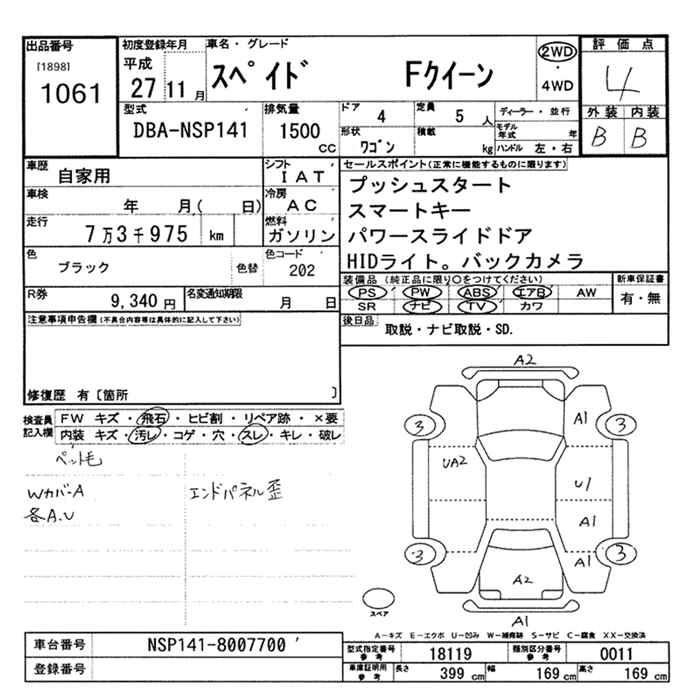 出品番号
[1898]
1061
初度登録年月
平成
27 11 月
車名・グレード
スペイド Fクイーン
2WD
・
4WD
評価点
4
外装 内装
B B
型式
DBA-NSP141
排気量
1500
cc
ドア 4
定員 5 人
形状 ワゴン
積載 kg
ディーラー・並行
モデル年式 年
ハンドル 左・右
車歴
自家用
車検
年 月(日)
走行
7万3千975 km
色
ブラック 色替
R券
9,340 円
名変通知期限
月 日
シフト
IAT
冷房
AC
燃料
ガソリン
色コード
202
セールスポイント(正常に機能するものに限ります)
プッシュスタート
スマートキー
パワースライドドア
HIDライト。バックカメラ
装備品(純正品に限り○をつけてください)
PS PW ABS エアB AW
SR ナビ TV カワ
新車保証書
有・無
後日品
取説・ナビ取説・SD.
注意事項申告欄(不具合内容等は具体的に記入して下さい)
修復歴 有〔箇所 〕
検査員記入欄
FW キズ・飛石・ヒビ割・リペア跡・×要
内装 キズ・汚レ・コゲ・穴・スレ・キレ・破レ
ペット毛
Wカバー A
各A.U
エンドパネル歪
A2
3
A1
3
UA2
U1
A1
3
A1
3
A2
スペア
A1
A-キズ E-エクボ U-凹み W-補修跡 S-サビ C-腐食 XX-交換済
車台番号
NSP141-8007700
登録番号
型式指定番号
参考
18119
類別区分番号
参考
0011
車庫証明用
参考
長さ 399 cm
幅 169 cm
高さ 169 cm